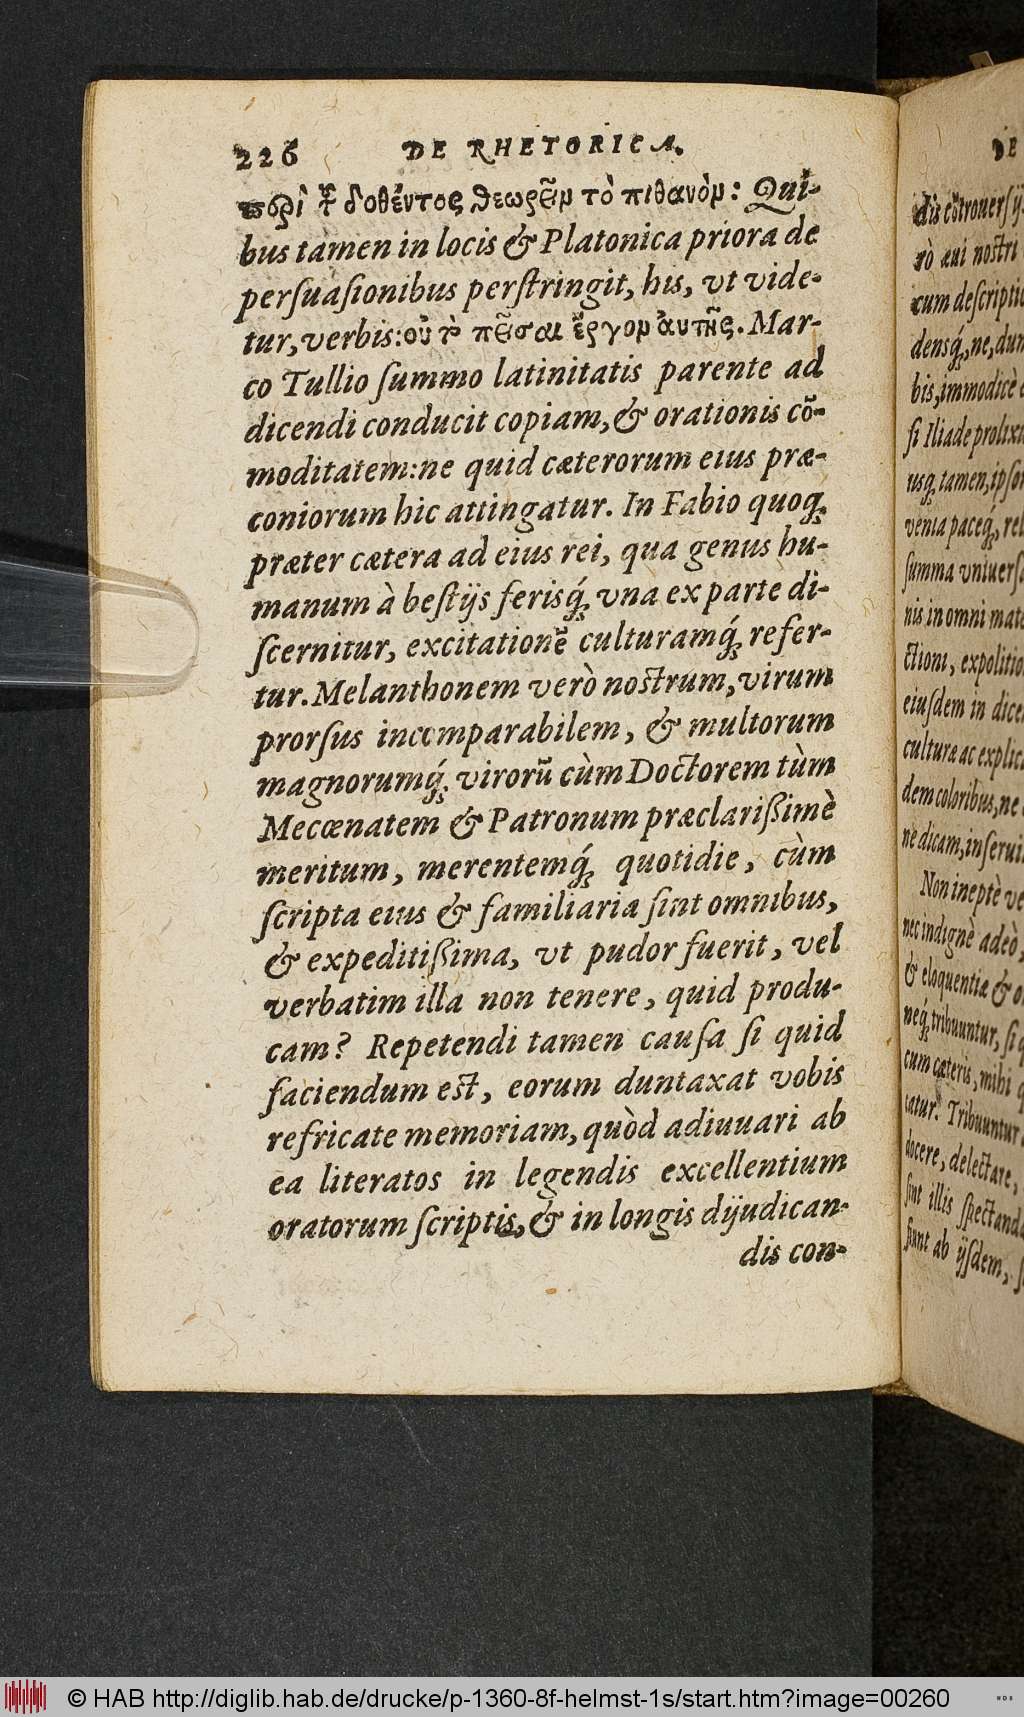 226 DE RHETORICA.
περὶ τ δοθέντος θεωρεῖν τὸ πιθανὸν: Qui-
bus tamen in locis & Platonica priora de
persuasionibus perstringit, his, vt vide-
tur, verbis: οὐ τὸ πεῖσαι ἔργον ἀυτῆς. Mar-
co Tullio summo latinitatis parente ad
dicendi conducit copiam, & orationis cō-
moditatem: ne quid cæterorum eius præ-
coniorum hic attingatur. In Fabio quoq;
præter cætera ad eius rei, qua genus hu-
manum à bestijs ferisq́; vna ex parte di-
scernitur, excitationē culturamq́; refer-
tur. Melanthonem verò nostrum, virum
prorsus incomparabilem, & multorum
magnorumq́; virorū cùm Doctorem tùm
Mecœnatem & Patronum præclarißimè
meritum, merentemq́; quotidie, cùm
scripta eius & familiaria sint omnibus,
& expeditißima, vt pudor fuerit, vel
verbatim illa non tenere, quid produ-
cam? Repetendi tamen causa si quid
faciendum est, eorum duntaxat vobis
refricate memoriam, quòd adiuuari ab
ea literatos in legendis excellentium
oratorum scriptis, & in longis dijudican-
dis con-
DE
dis cōtrouersij
rò æui nostri
cum descriptio
densq́;, ne, dum
bis, immodicè
si Iliade prolixi
usq; tamen, ipsor
venia paceq́;, rel
summa vniuersa
nis in omni mate
ctioni, expolitio
eiusdem in dice
culturæ ac explic
dem coloribus, ne
ne dicam, inserui
Non ineptè ve
nec indignè adeò,
& eloquentiæ & o
neq́; tribuuntur, si q
cum cæteris, mihi q
catur. Tribuuntur
docere, delectare,
sint illis spectanda
sunt ab ijsdem, s
© HAB http://diglib.hab.de/drucke/p-1360-8f-helmst-1s/start.htm?image=00260